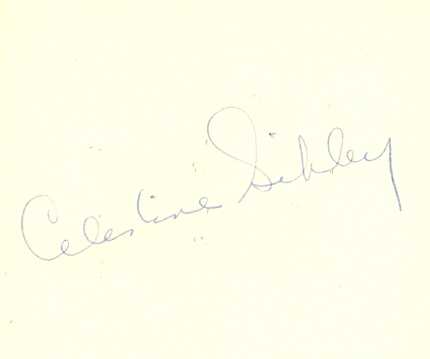 Celestine Sibley